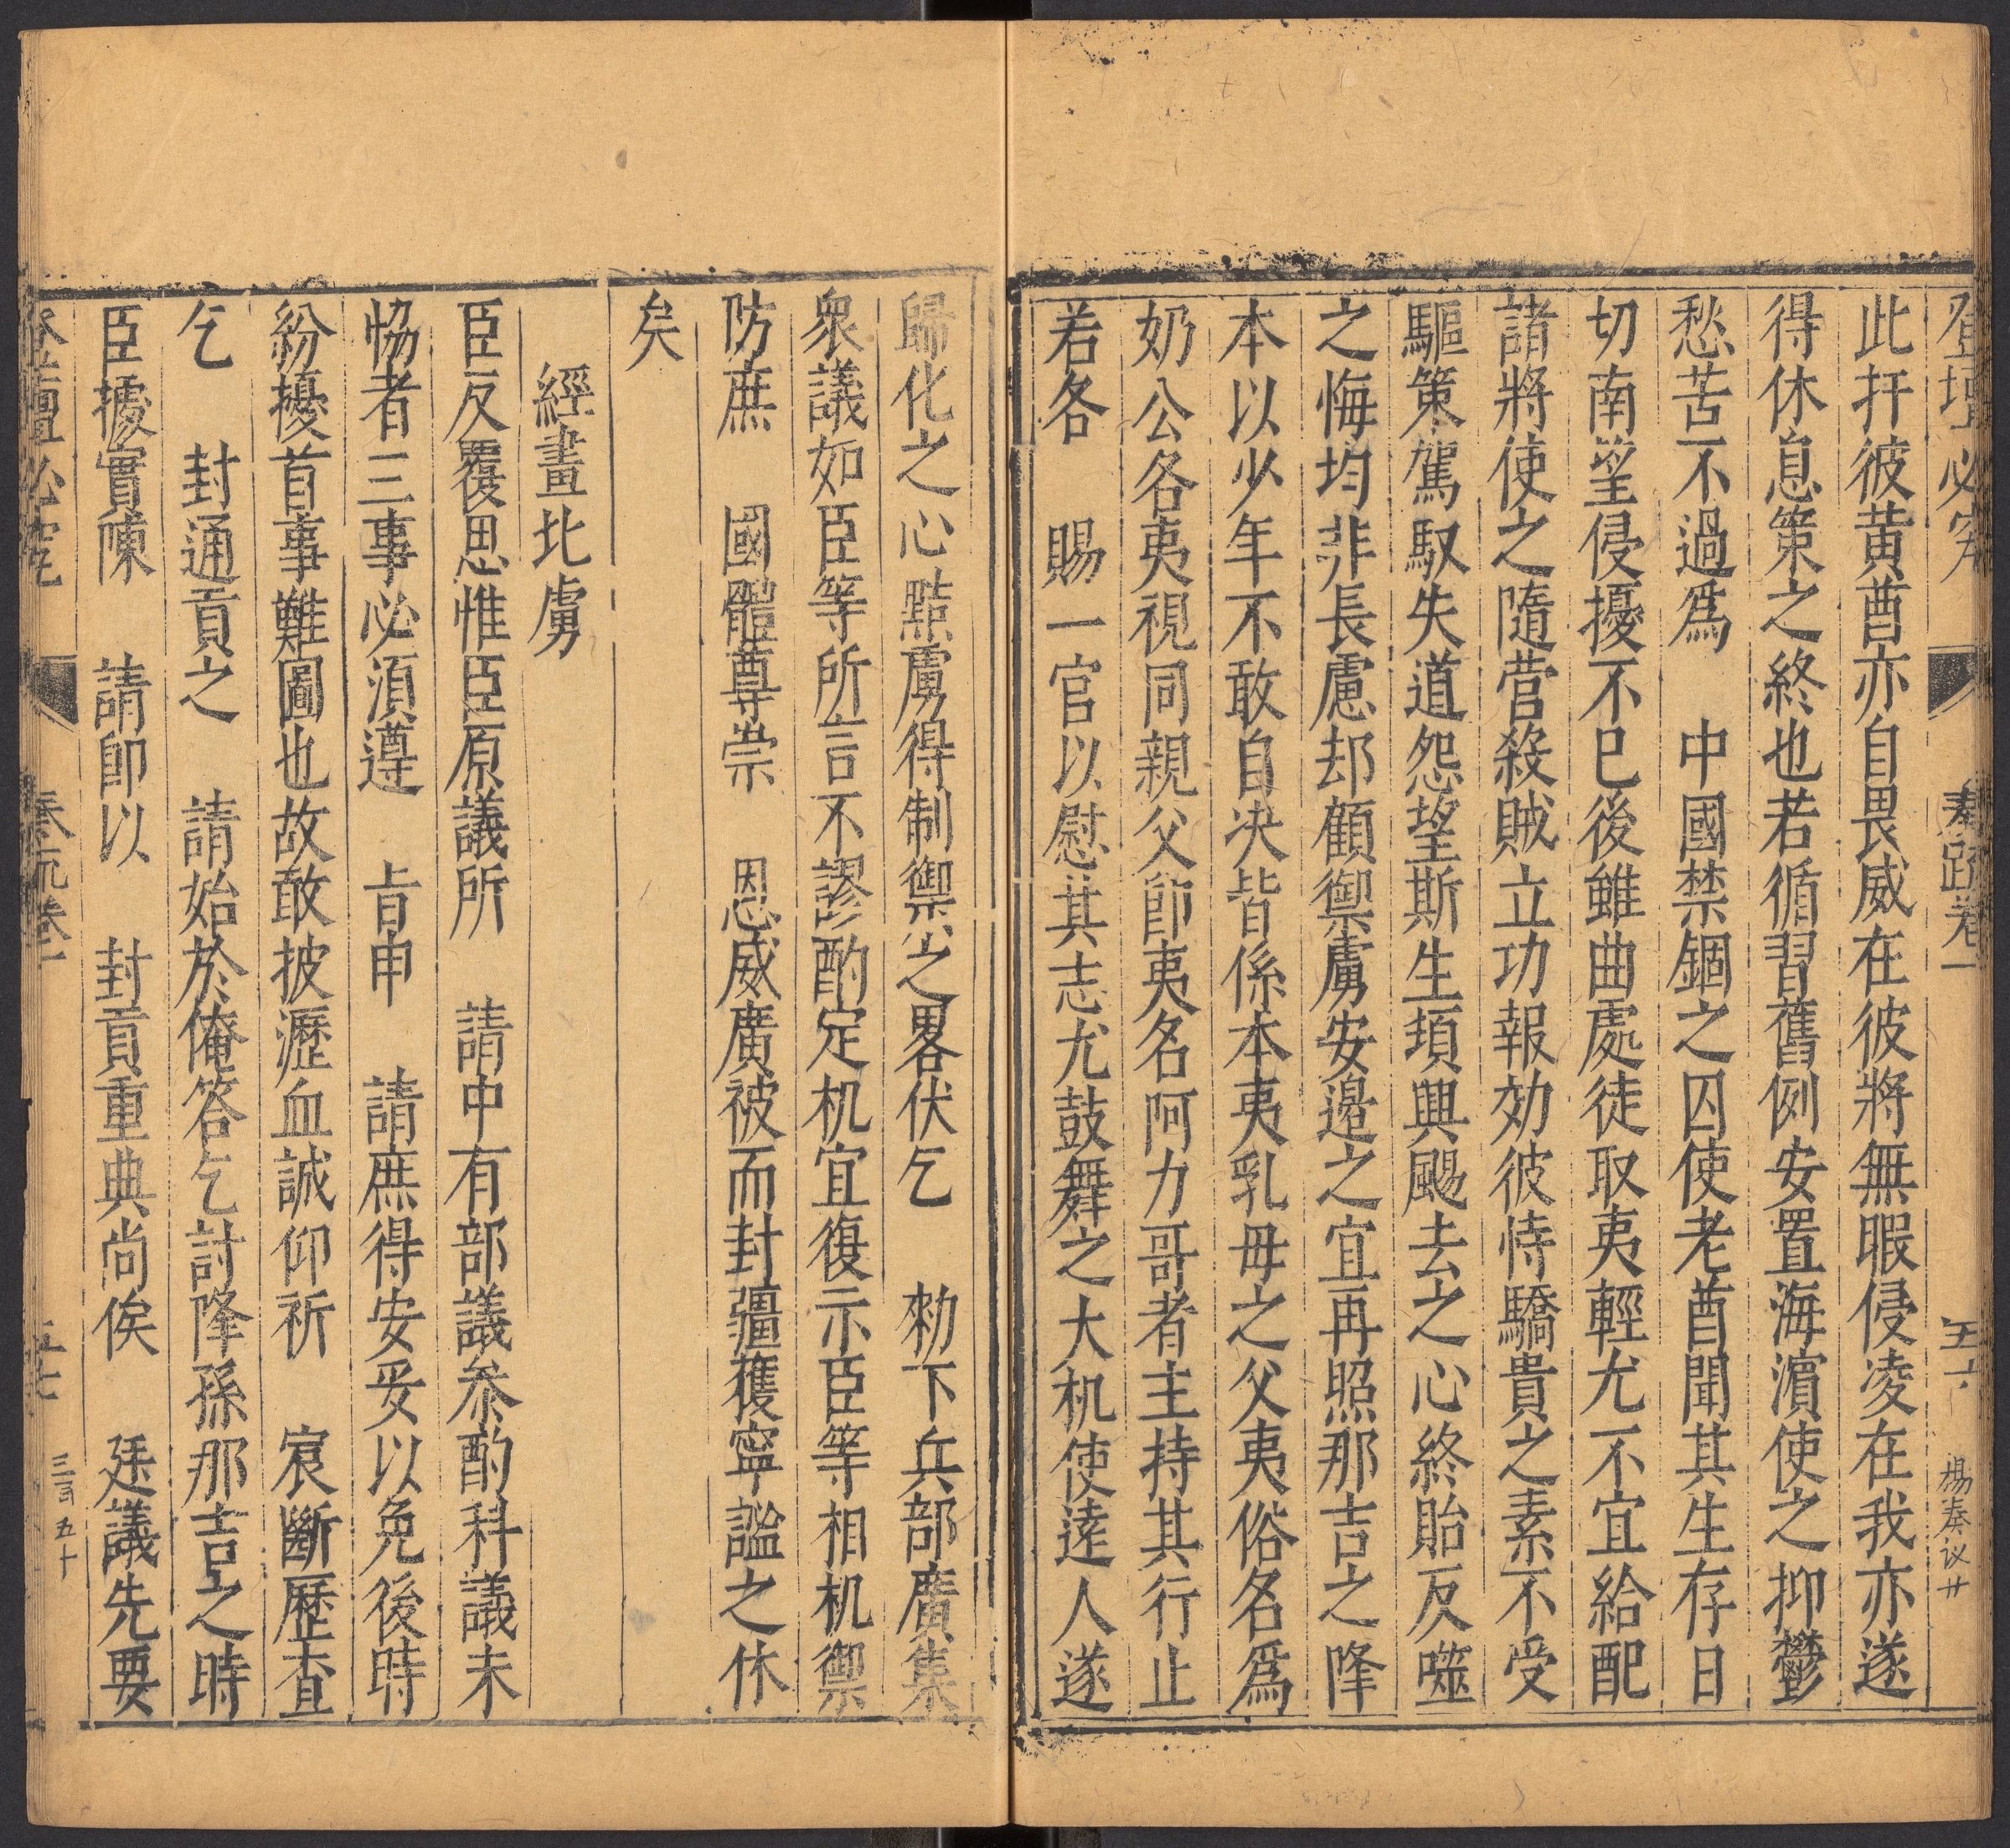 登壇必究 奏疏卷一 五十六 楊奏议廿
此扞彼黃酋亦自畏威在彼將無暇侵凌在我亦遂
得休息策之終也若循習舊例安置海濵使之抑鬱
愁苦不過爲 中國禁錮之囚使老酋聞其生存日
切南望侵擾不巳後雖曲處徒取夷輕尤不宜給配
諸將使之隨营殺賊立功報効彼恃驕貴之素不受
驅策駕馭失道怨望斯生頊興颺去之心終貽反噬
之悔均非長慮却顧禦虜安邉之宜再照那吉之降
本以少年不敢自决皆係本夷乳母之父夷俗名爲
奶公各夷視同親父卽夷名阿力哥者主持其行止
若各 賜一官以慰其志尤鼓舞之大机使逺人遂
歸化之心㸃虜得制禦之畧伏乞 勑下兵部廣集
衆議如臣等所言不謬酌定机宜復示臣等相机禦
防庶 國體尊崇 恩威廣被而封疆獲寕謐之休
矣
經畫北虜
臣反覆思惟臣原議所 請中有部議叅酌科議未
恊者三事必湏遵 旨申 請庶得安妥以免後時
紛擾首事難圖也故敢披瀝血誠仰祈 宸斷歷查
乞 封通貢之 請始於俺答乞討降孫那吉之時
臣據實陳 請卽以 封貢重典尚俟 廷議先要
登壇必究 奏疏卷一 五十七 三百五十